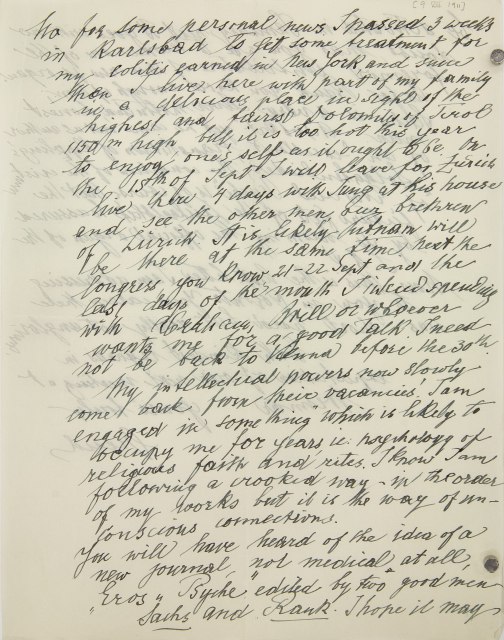 [9 VIII 1911]
No for some personal news. I passed 3 weeks
in Karlsbad to get some treatment for
my colitis earned in New York and since
when I live here with part of my family
in a delicious place in sight of the
highest and fairest Dolomits of Tirol
1150 m high but it is too hot this year
to enjoy one's self as it ought to be. On
the 15th of Sept I will leave for Zürich
live there 4 days with Jung at his house
and see the other men, our brethren
of Zürich. It is likely Putnam will
be there at the same time. Next the
Congress you know 21-22 Sept and the
last days of the month I intend spending
with Abraham, Brill or whoever
wants me for a good talk. I need
not be back to Vienna before the 30th.
My intellectual powers now slowly
come back from their vacancies, I am
engaged in something which is likely to
occupy me for years i.e. psychology of
religious faith and rites. I know I am
following a crooked way in the order
of my works but it is the way of un-
conscious connections.
You will have heard of the idea of a
new journal, not medical at all,
"Eros u Psyche" edited by two good men
Sachs and Rank. I hope it may